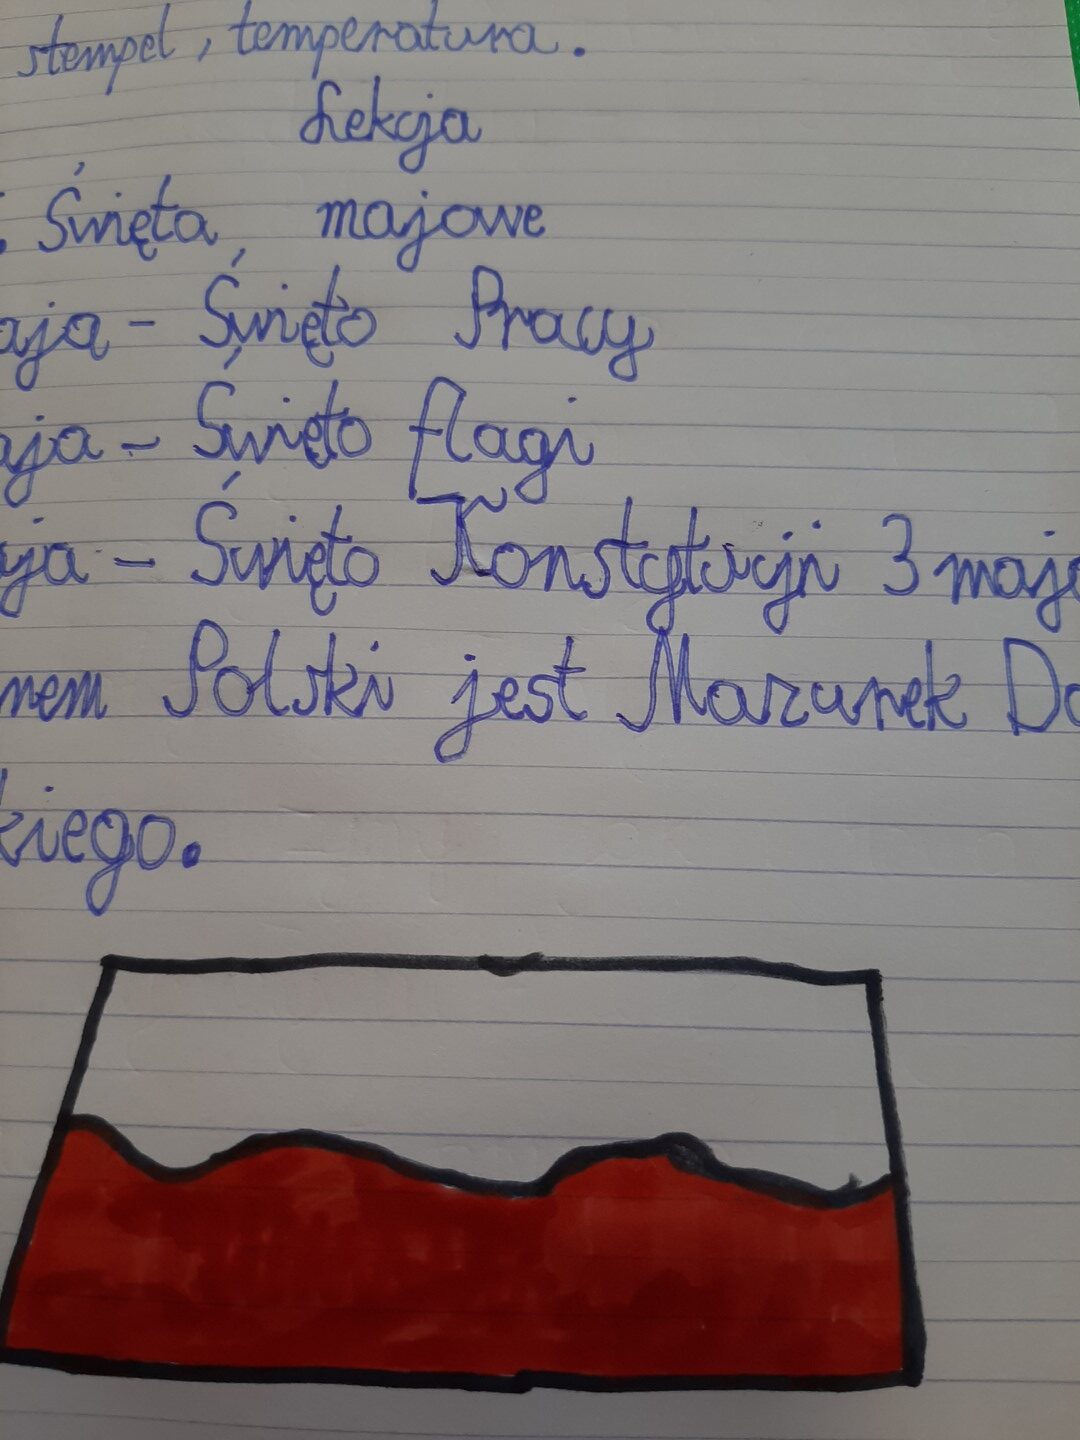 stempel, temperatura.
Lekcja
. Święta majowe
aja - Święto Pracy
aja - Święto flagi
ja - Święto Konstytucji 3 maja
nem Polski jest Mazurek Dą
kiego.